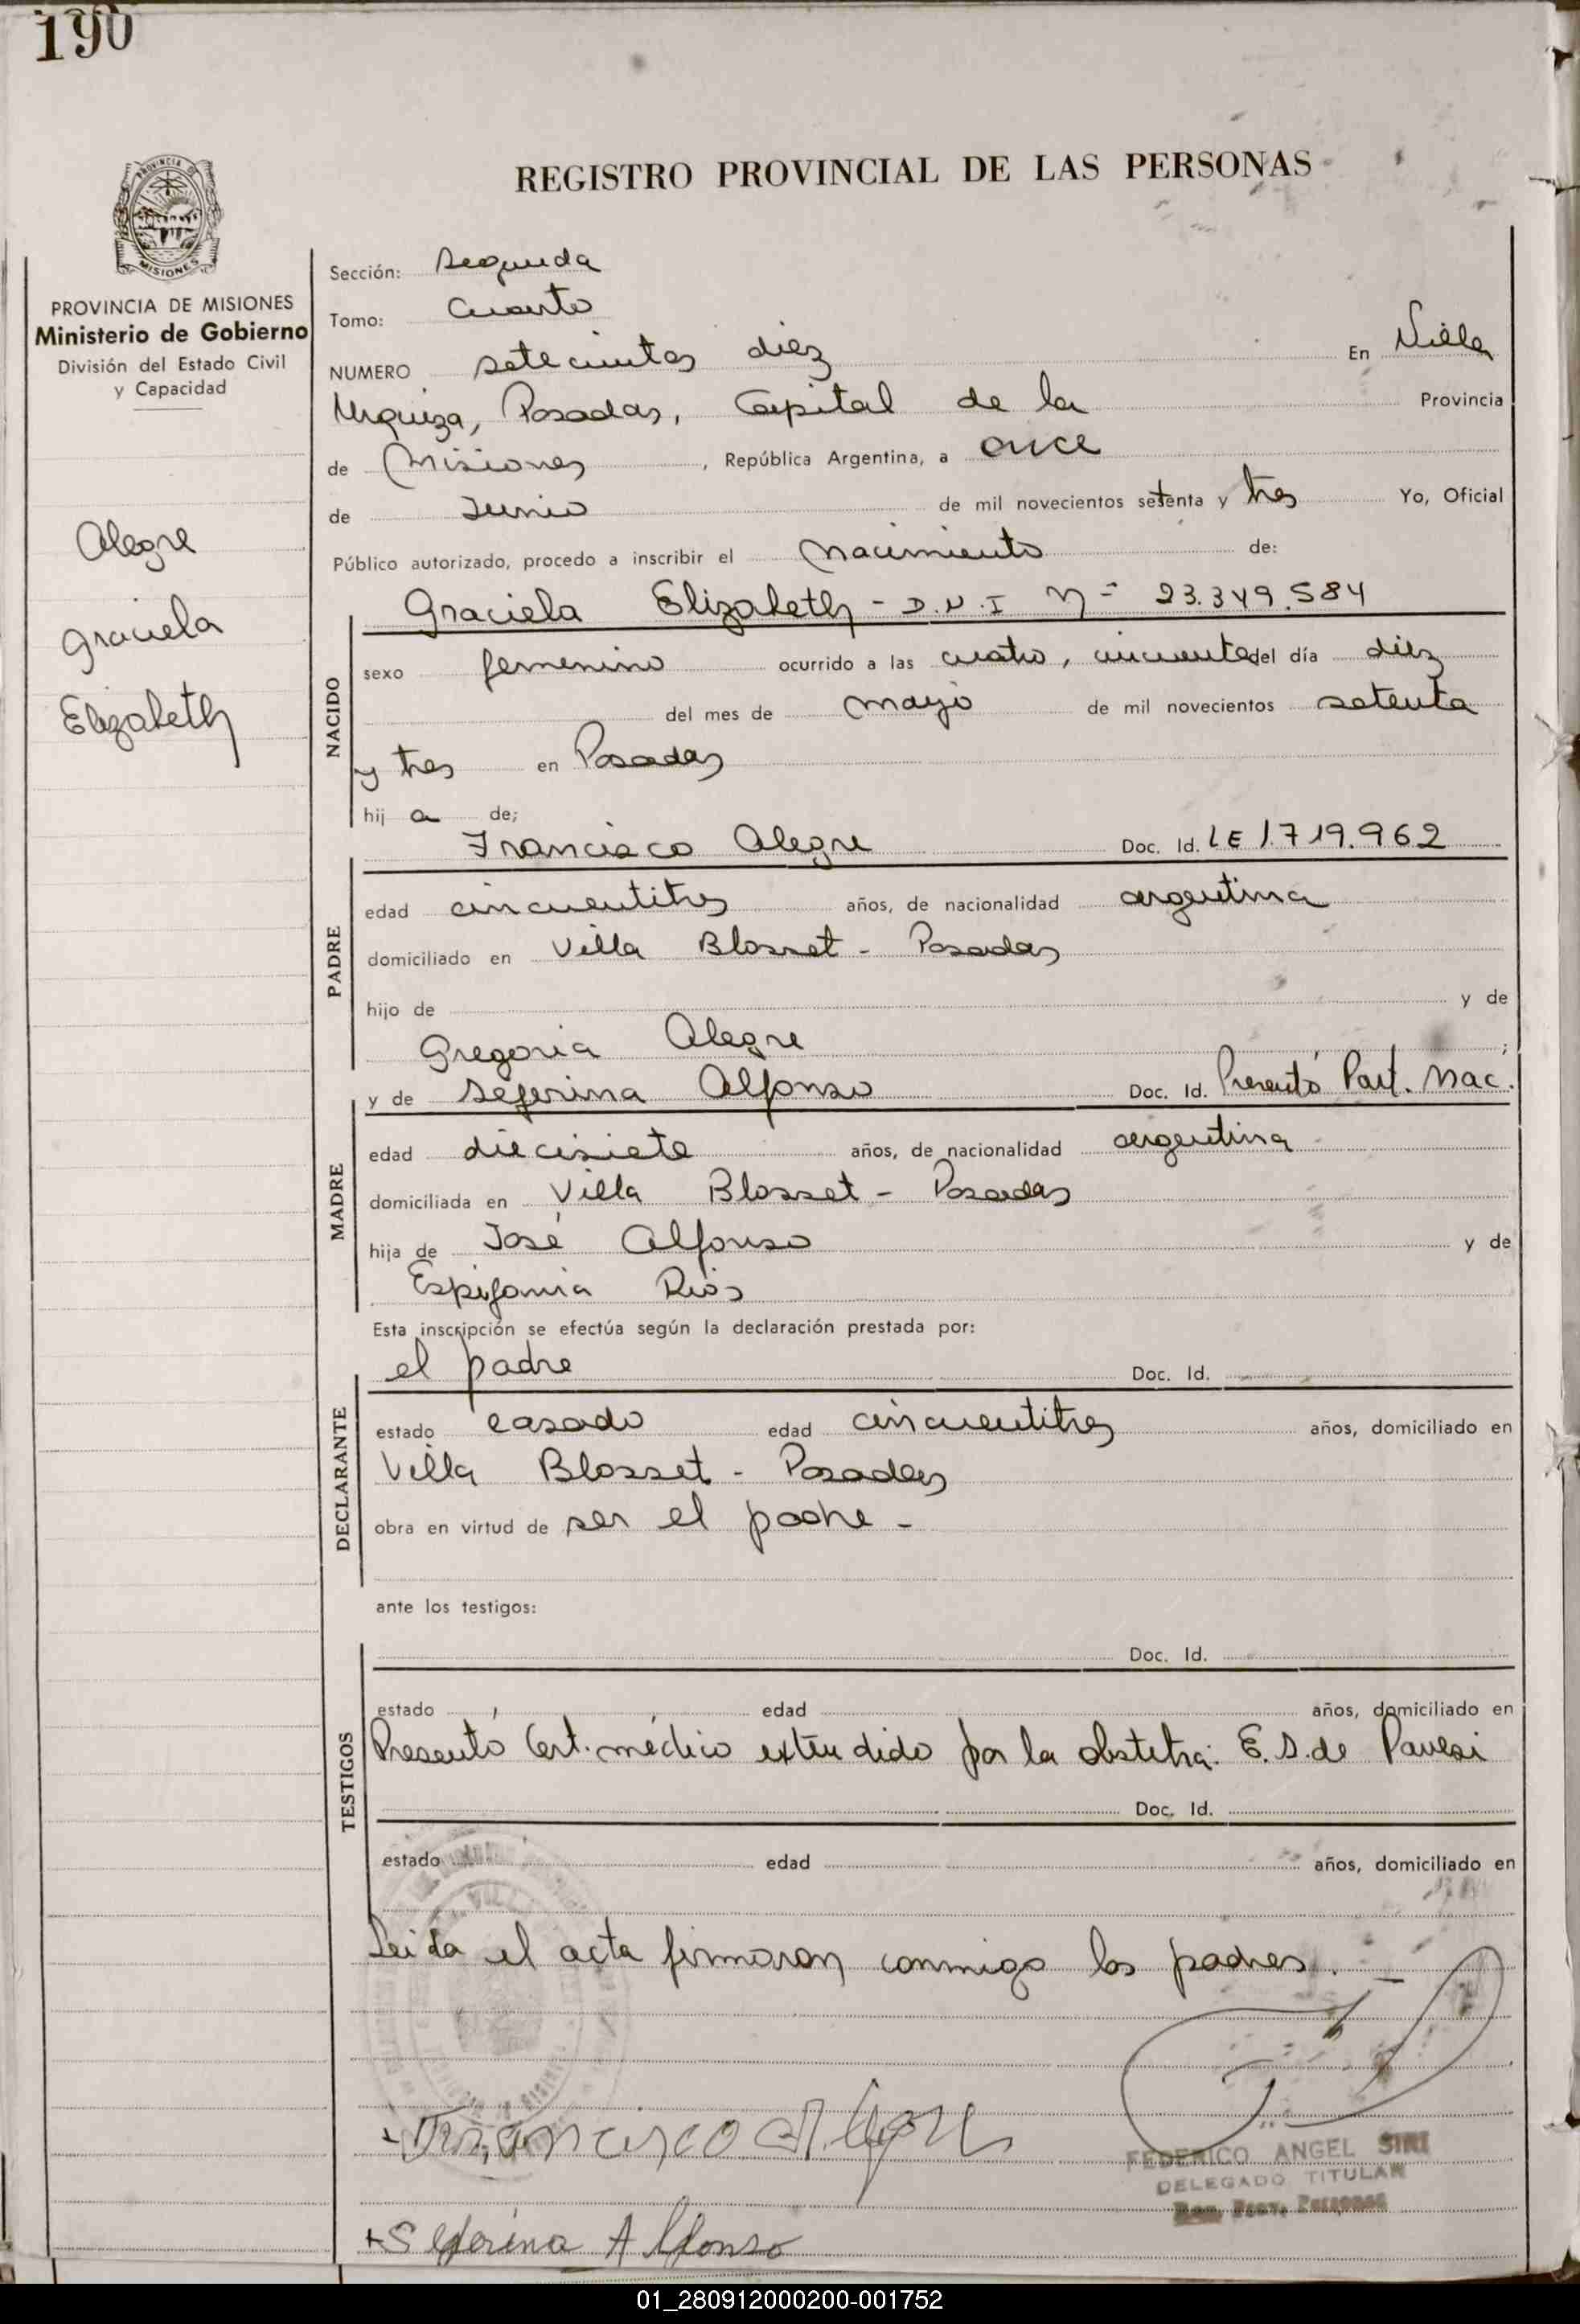 190
REGISTRO PROVINCIAL DE LAS PERSONAS
PROVINCIA DE MISIONES
Ministerio de Gobierno
División del Estado Civil
y Capacidad
Alegre
Graciela
Elizabeth
Sección: Segunda
Tomo: Cuarto
NUMERO setecientos diez En Villa
Urquiza, Posadas, Capital de la Provincia
de Misiones, República Argentina, a once
de Junio de mil novecientos setenta y tres Yo, Oficial
Público autorizado, procedo a inscribir el nacimiento de:
NACIDO
Graciela Elizabeth - D.N.I Nº 23.349.584
sexo femenino ocurrido a las cuatro, cincuenta del día diez
del mes de mayo de mil novecientos setenta
y tres en Posadas
hij a de;
PADRE
Francisco Alegre Doc. Id. LE 1.719.962
edad cincuentitres años, de nacionalidad argentina
domiciliado en Villa Blosset - Posadas
hijo de y de
Gregoria Alegre ;
MADRE
y de Seferina Alfonso Doc. Id. Presentó Part. Nac.
edad diecisiete años, de nacionalidad argentina
domiciliada en Villa Blosset - Posadas
hija de José Alfonso y de
Espifania Rios
Esta inscripción se efectúa según la declaración prestada por:
DECLARANTE
el padre Doc. Id.
estado casado edad cincuentitres años, domiciliado en
Villa Blosset - Posadas
obra en virtud de ser el padre -
ante los testigos:
TESTIGOS
Doc. Id.
estado edad años, domiciliado en
Presentó Cert. médico extendido por la obstetra: E. S. de Pavesi
Doc. Id.
estado edad años, domiciliado en
Leida el acta firmaron conmigo los padres. -
Francisco Alegre
FEDERICO ANGEL SIRI
DELEGADO TITULAR
Reg. Prov. Personas
+Seferina Alfonso
01_280912000200-001752